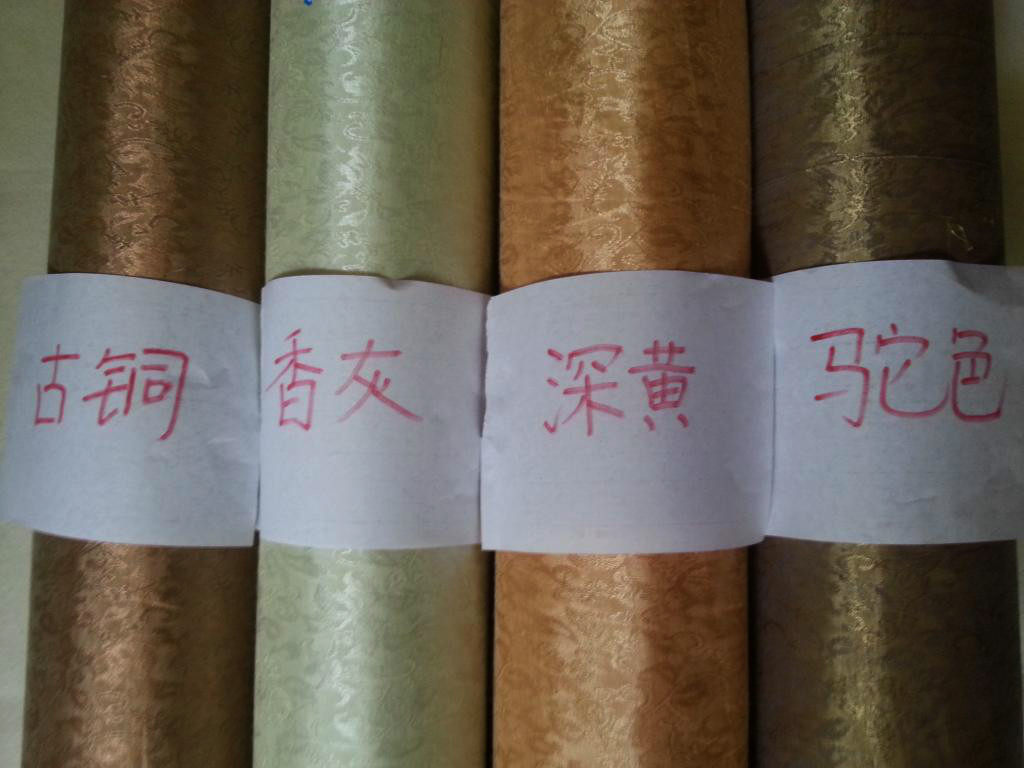 古铜
香灰
深黄
驼色